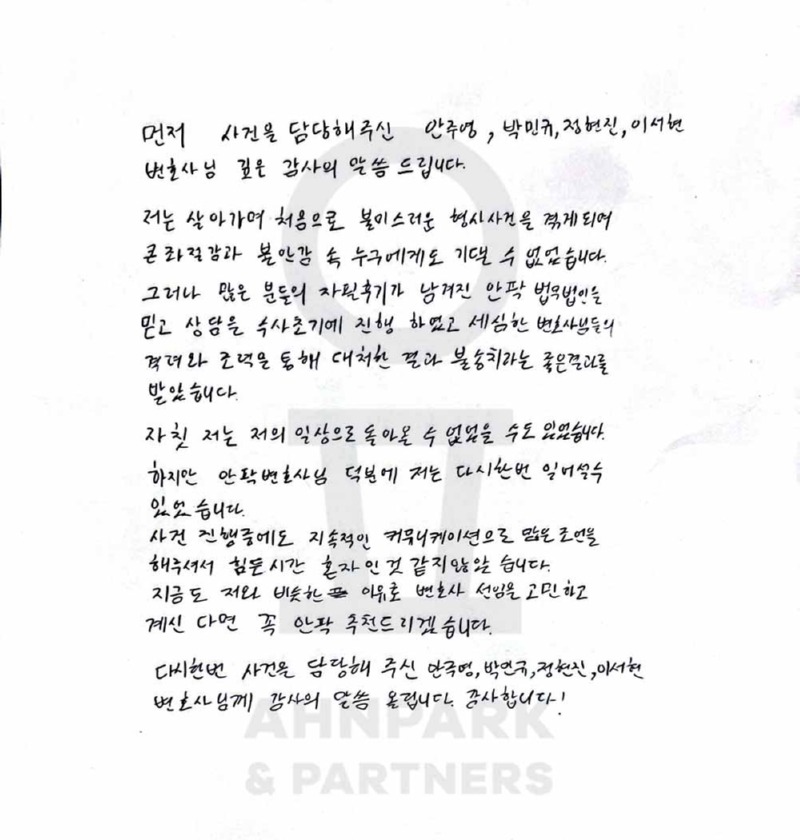 먼저 사건을 담당해주신 안주영, 박민규, 정현진, 이서현
변호사님 깊은 감사의 말씀 드립니다.
저는 살아가며 처음으로 불미스러운 형사사건을 겪게되어
큰 좌절감과 불안감 속 누구에게도 기댈 수 없었습니다.
그러나 많은 분들의 자필후기가 남겨진 안팍 법무법인을
믿고 상담을 수사초기에 진행 하였고 세심한 변호사님들의
격려와 조력을 통해 대처한 결과 불송치라는 좋은결과를
받았습니다.
자칫 저는 저의 일상으로 돌아올 수 없었을 수도 있었습니다.
하지만 안팍변호사님 덕분에 저는 다시한번 일어설수
있었습니다.
사건 진행중에도 지속적인 커뮤니케이션으로 많은조언을
해주셔서 힘든시간 혼자인것 같지않았습니다.
지금도 저와 비슷한 이유로 변호사 선임을 고민하고
계신 다면 꼭 안팍 추천드리겠습니다.
다시한번 사건을 담당해 주신 안주영, 박민규, 정현진, 이서현
변호사님께 감사의 말씀 올립니다. 감사합니다!
AHNPARK
& PARTNERS